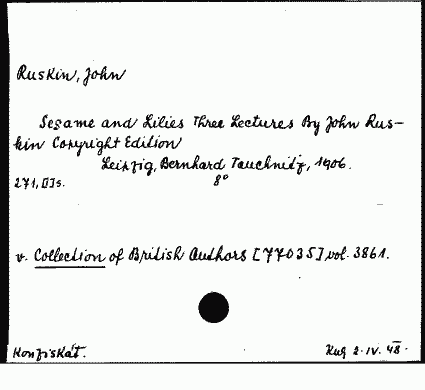 Ruskin, John
Sesame and Lilies Three Lectures By John Rus-
kin Copyright Edition
Leipzig, Bernhard Tauchnitz, 1906.
271, []s. 8°
v. Collection of British Authors [77035] vol. 3861.
Konfiskát. Kug 2.IV. 48.